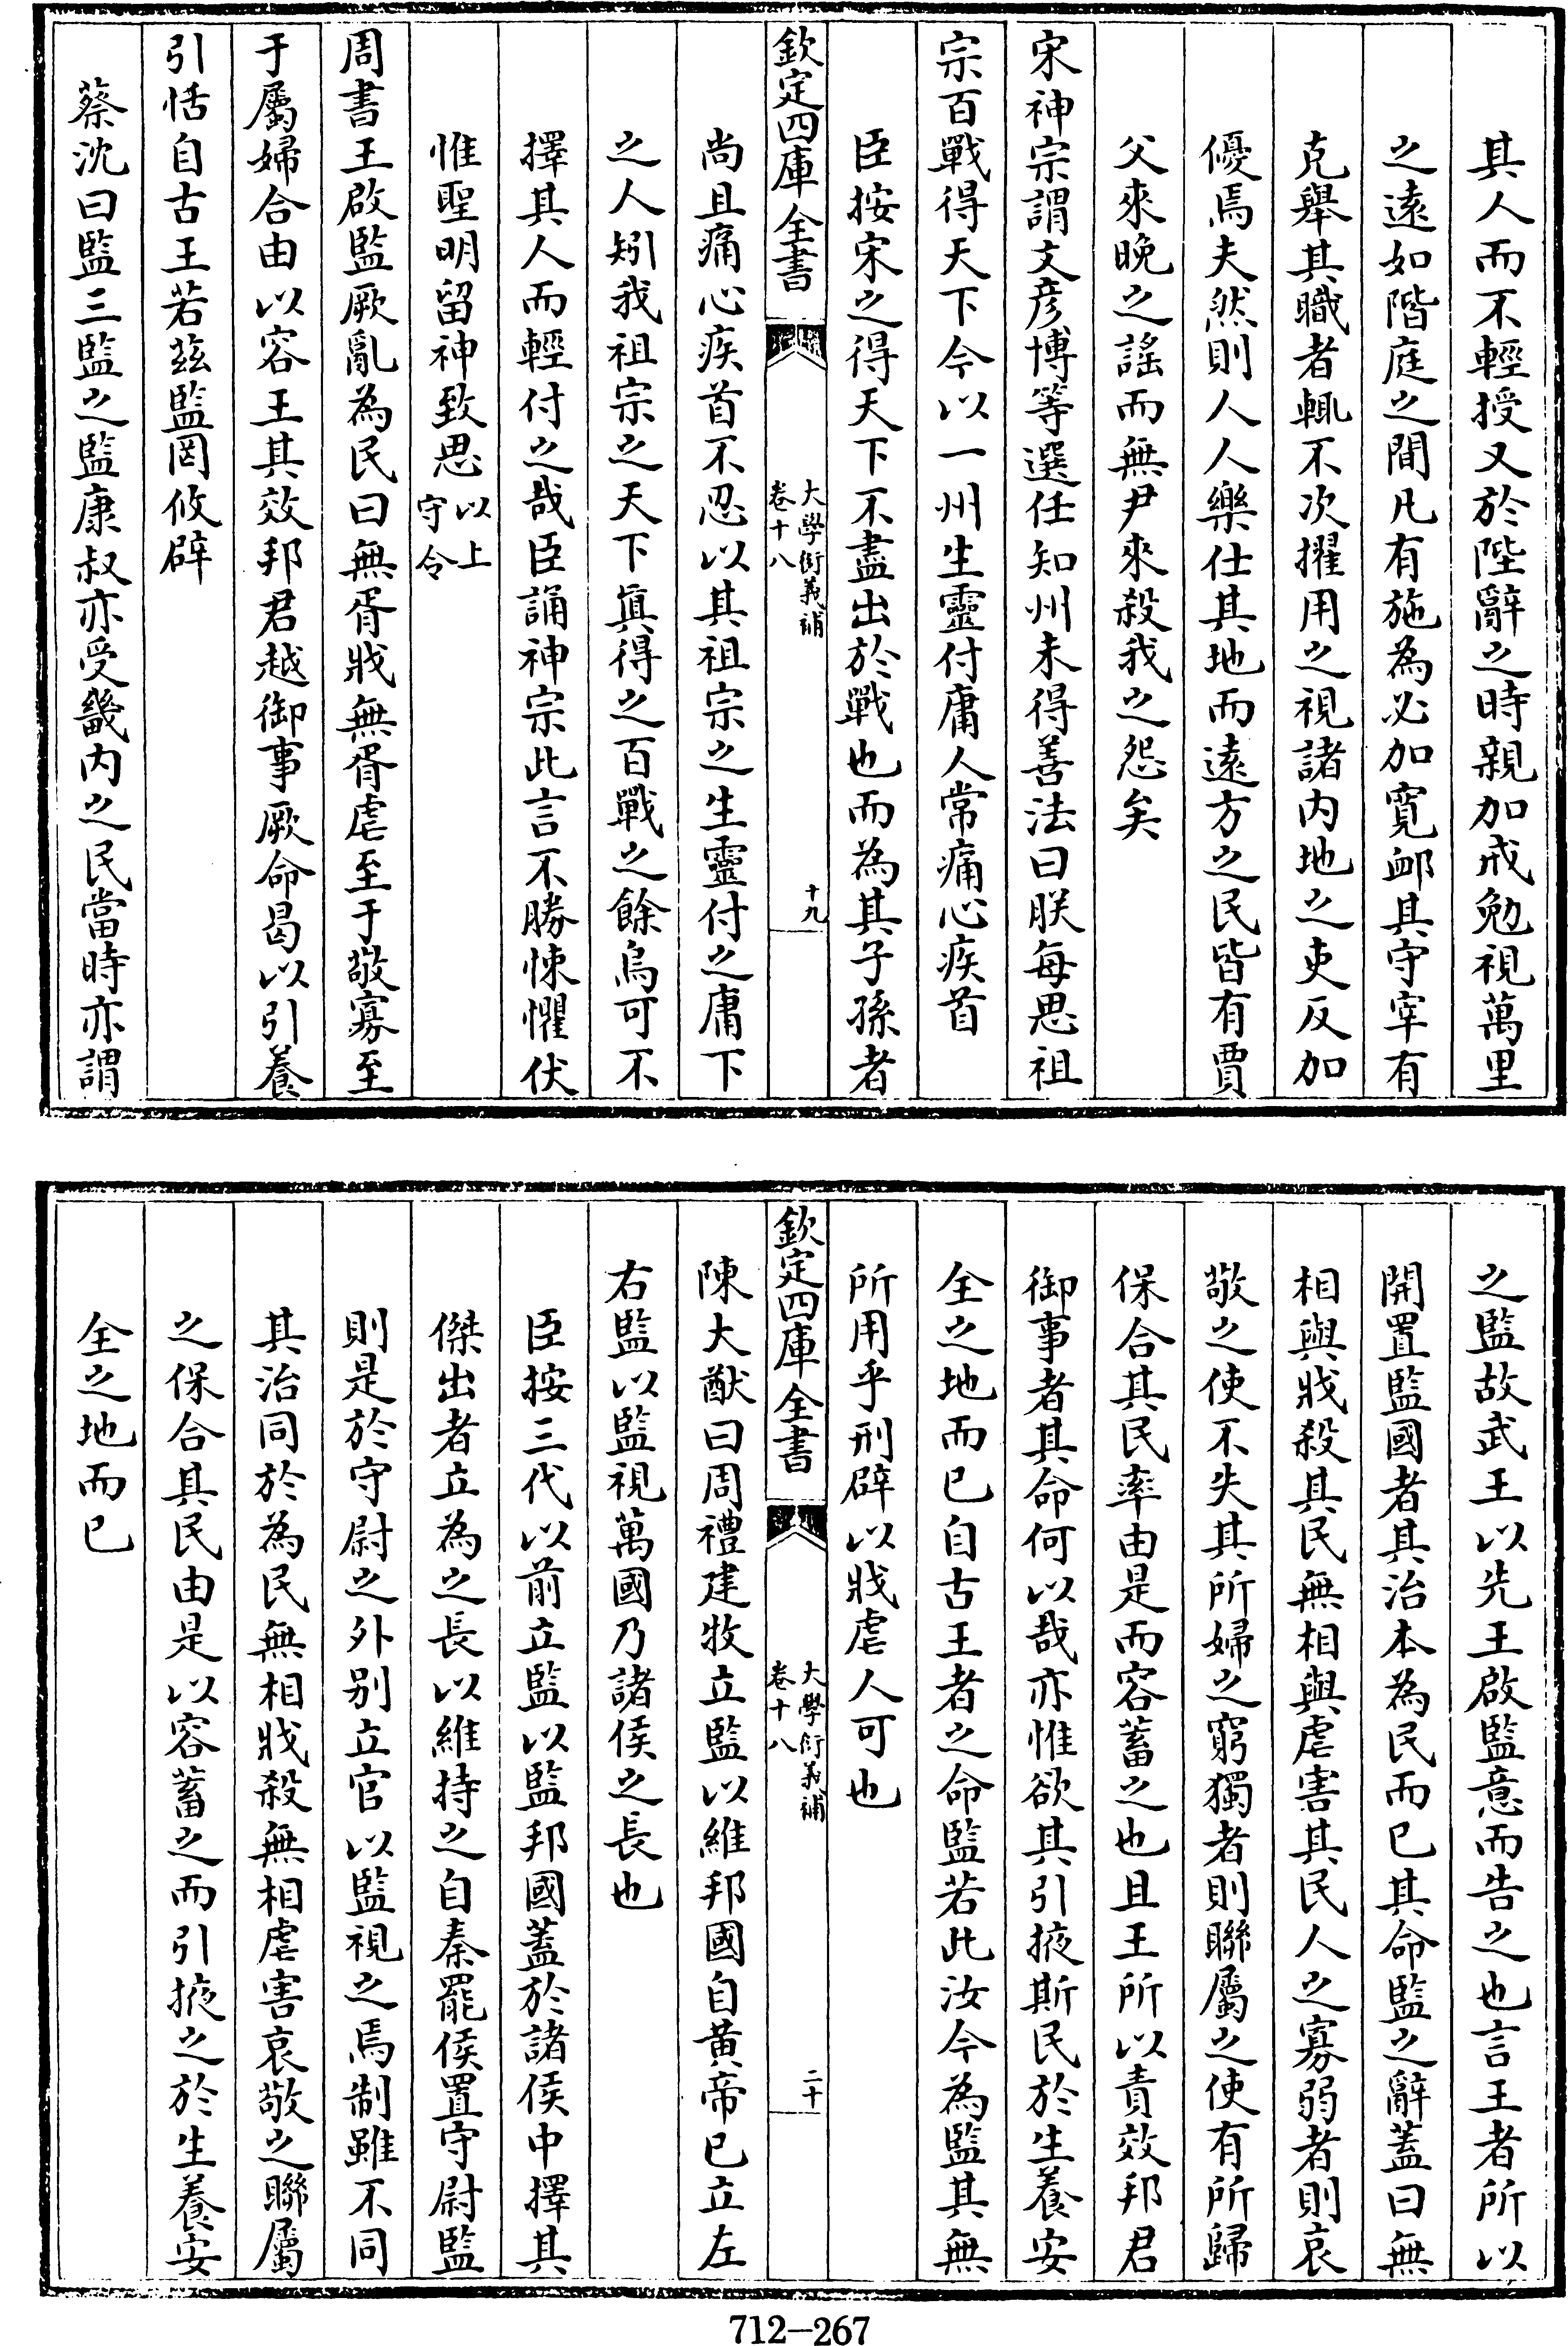 其人而不輕授又於陛辭之時親加戒勉視萬里
之遠如階庭之間凡有施為必加寛䘏其守宰有
克舉其職者輒不次擢用之視諸内地之吏反加
優焉夫然則人人樂仕其地而遠方之民皆有賈
父來晚之謡而無尹來殺我之怨矣
宋神宗謂文彦博等選任知州未得善法曰朕每思祖
宗百戰得天下今以一州生靈付庸人常痛心疾首
臣按宋之得天下不盡出於戰也而為其子孫者
欽定四庫全書
大學衍義補
卷十八
十九
尚且痛心疾首不忍以其祖宗之生靈付之庸下
之人矧我祖宗之天下眞得之百戰之餘烏可不
擇其人而輕付之哉臣誦神宗此言不勝悚懼伏
惟聖明留神致思以上守令
周書王啟監厥亂為民曰無胥戕無胥虐至于敬寡至
于屬婦合由以容王其效邦君越御事厥命曷以引養
引恬自古王若兹監罔攸辟
蔡沈曰監三監之監康叔亦受畿内之民當時亦謂
之監故武王以先王啟監意而告之也言王者所以
開置監國者其治本為民而已其命監之辭蓋曰無
相與戕殺其民無相與虐害其民人之寡弱者則哀
敬之使不失其所婦之窮獨者則聯屬之使有所歸
保合其民率由是而容蓄之也且王所以責效邦君
御事者其命何以哉亦惟欲其引掖斯民於生養安
全之地而已自古王者之命監若此汝今為監其無
所用乎刑辟以戕虐人可也
欽定四庫全書
大學衍義補
卷十八
二十
陳大猷曰周禮建牧立監以維邦國自黄帝已立左
右監以監視萬國乃諸侯之長也
臣按三代以前立監以監邦國蓋於諸侯中擇其
傑出者立為之長以維持之自秦罷侯置守尉監
則是於守尉之外别立官以監視之焉制雖不同
其治同於為民無相戕殺無相虐害哀敬之聯屬
之保合其民由是以容蓄之而引掖之於生養安
全之地而已
712-267